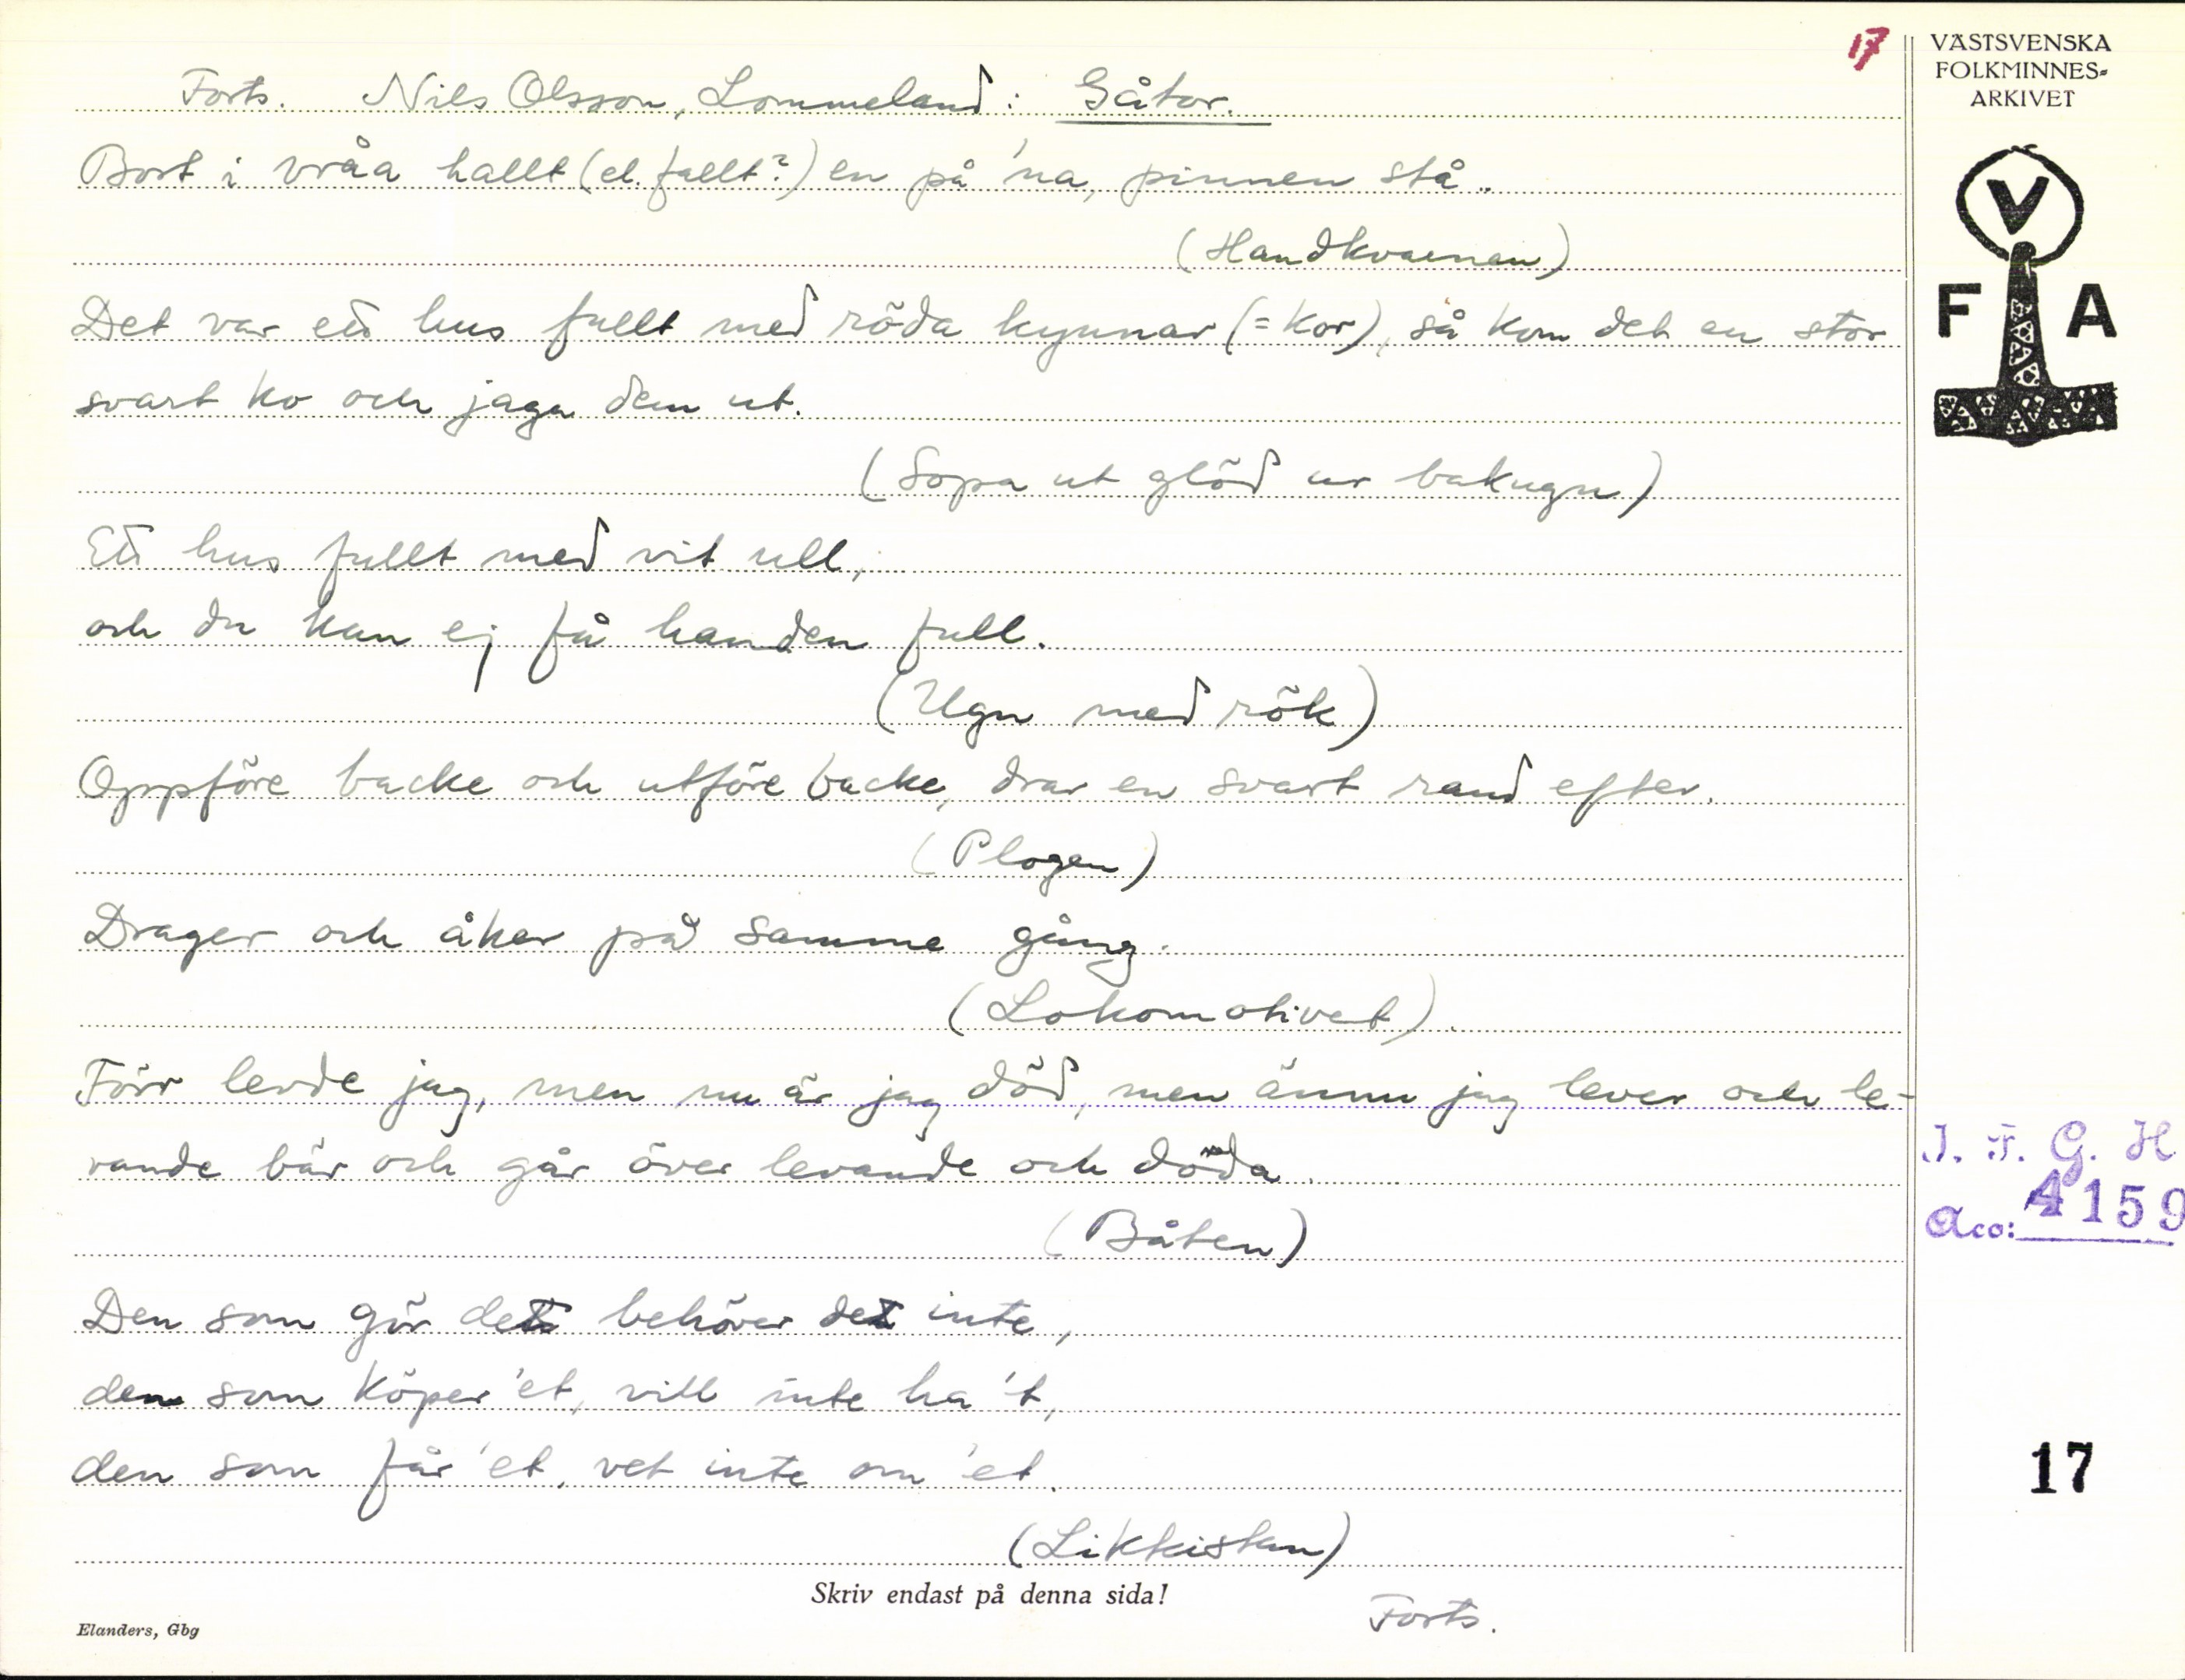 17
VÄSTSVENSKA
FOLKMINNES-
ARKIVET
V
F A
Forts. Nils Olsson, Lommeland: Gåtor.
Bort i vråa hallt (el. fullt?) en på 'na, pinnen stå.
(Handkvarnen)
Det var ett hus fullt med röda kynnar (= kor), så kom det en stor
svart ko och jaga dem ut.
(Sopa ut glöd ur bakugn)
Ett hus fullt med vit ull,
och du kan ej få handen full.
(Ugn med rök)
Oppföre backe och utföre backe, drar en svart rand efter.
(Plogen)
Drager och åker på samme gång.
(Lokomotivet).
Förr levde jag, men nu är jag död, men ännu jag lever och le-
vande bär och går över levande och döda.
(Båten)
Den som gör det behöver det inte,
den som köper 'et, vill inte ha 't,
den som får 'et, vet inte om 'et.
(Likkistan)
Forts.
I. F. G. H
Acc: 4159
17
Skriv endast på denna sida!
Elanders, Gbg